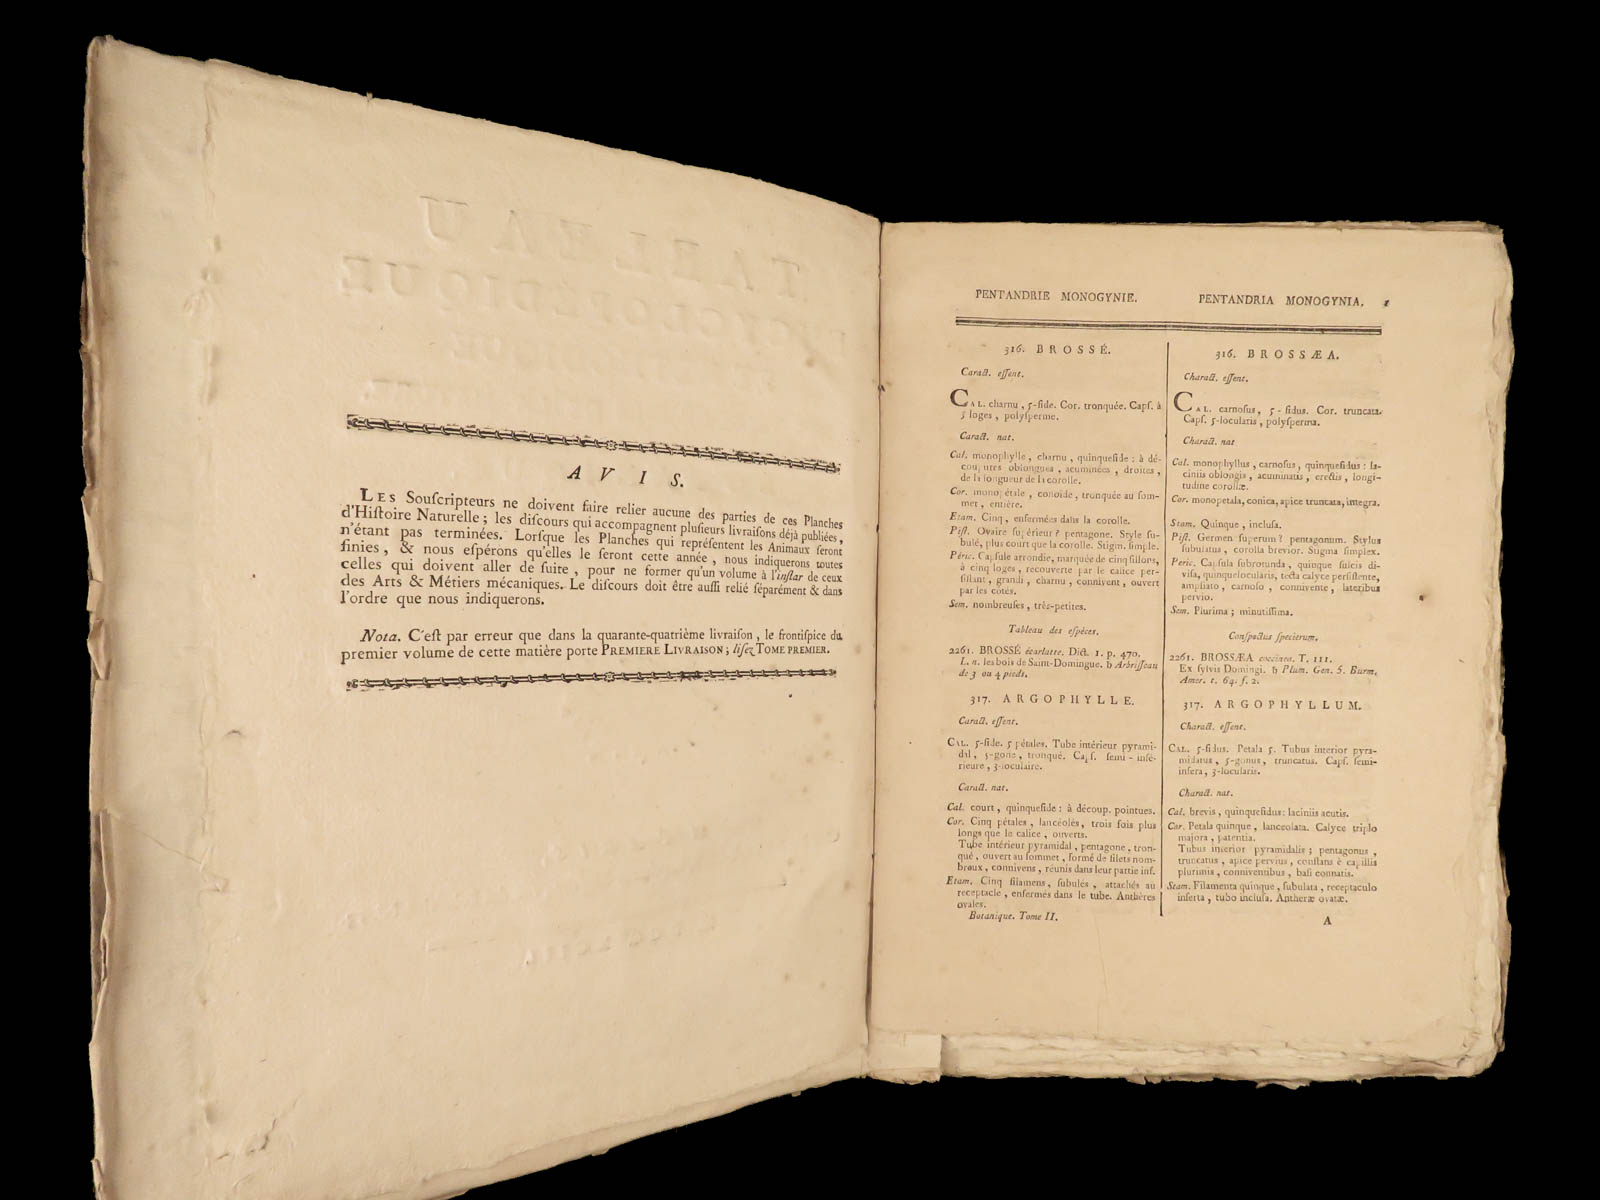 AVIS.
LES Souſcripteurs ne doivent faire relier aucune des parties de ces Planches
d'Hiſtoire Naturelle ; les diſcours qui accompagnent pluſieurs livraiſons déjà publiées,
n'étant pas terminées. Lorſque les Planches qui repréſentent les Animaux ſeront
finies, & nous eſpérons qu'elles le ſeront cette année, nous indiquerons toutes
celles qui doivent aller de ſuite, pour ne former qu'un volume à l'inſtar de ceux
des Arts & Métiers mécaniques. Le diſcours doit être auſſi relié ſéparément & dans
l'ordre que nous indiquerons.
Nota. C'eſt par erreur que dans la quarante-quatrième livraiſon, le frontiſpice du
premier volume de cette matière porte PREMIERE LIVRAISON ; liſez TOME PREMIER.
PENTANDRIE MONOGYNIE.
316. BROSSÉ.
Caract. eſſent.
CAL. charnu, 5-fide. Cor. tronquée. Capſ. à
5 loges, polyſperme.
Caract. nat.
Cal. monophylle, charnu, quinquefide : à dé-
coupures oblongues, acuminées, droites,
de la longueur de la corolle.
Cor. monopétale, conoïde, tronquée au ſom-
met, entière.
Etam. Cinq, enfermées dans la corolle.
Piſt. Ovaire ſupérieur ? pentagone. Style ſu-
bulé, plus court que la corolle. Stigm. ſimple.
Péric. Capſule arrondie, marquée de cinq ſillons,
à cinq loges, recouverte par le calice per-
ſiſtant, grandi, charnu, connivent, ouvert
par les côtés.
Sem. nombreuſes, très-petites.
Tableau des eſpèces.
2261. BROSSÉ écarlatte. Dict. 1. p. 470.
L. n. les bois de Saint-Domingue. ♄ Arbriſſeau
de 3 ou 4 pieds.
317. ARGOPHYLLE.
Caract. eſſent.
CAL. 5-fide. 5 pétales. Tube intérieur pyrami-
dal, 5-gone, tronqué. Capſ. ſemi-infé-
rieure, 3-loculaire.
Caract. nat.
Cal. court, quinquefide : à découp. pointues.
Cor. Cinq pétales, lancéolés, trois fois plus
longs que le calice, ouverts.
Tube intérieur pyramidal, pentagone, tron-
qué, ouvert au ſommet, formé de filets nom-
breux, connivens, réunis dans leur partie inf.
Etam. Cinq filamens, ſubulés, attachés au
receptacle, enfermés dans le tube. Anthères
ovales.
Botanique. Tome II.
PENTANDRIA MONOGYNIA. 1
316. BROSSÆA.
Charact. eſſent.
CAL. carnoſus, 5-fidus. Cor. truncata.
Capſ. 5-locularis, polyſperma.
Charact. nat
Cal. monophyllus, carnoſus, quinquefidus : la-
ciniis oblongis, acuminatis, erectis, longi-
tudine corollæ.
Cor. monopetala, conica, apice truncata, integra.
Stam. Quinque, incluſa.
Piſt. Germen ſuperum ? pentagonum. Stylus
ſubulatus, corolla brevior. Stigma ſimplex.
Peric. Capſula ſubrotunda, quinque ſulcis di-
viſa, quinquelocularis, tecta calyce perſiſtente,
ampliato, carnoſo, connivente, lateribus
pervio.
Sem. Plurima ; minutiſſima.
Conſpectus ſpecierum.
2261. BROSSÆA coccinea. T. 111.
Ex ſylvis Domingi. ♄ Plum. Gen. 5. Burm.
Amer. t. 64. f. 2.
317. ARGOPHYLLUM.
Charact. eſſent.
CAL. 5-fidus. Petala 5. Tubus interior pyra-
midatus, 5-gonus, truncatus. Capſ. ſemi-
infera, 3-locularis.
Charact. nat.
Cal. brevis, quinquefidus : laciniis acutis.
Cor. Petala quinque, lanceolata. Calyce triplo
majora, patentia.
Tubus interior pyramidalis ; pentagonus,
truncatus, apice pervius, conſtans è capillis
plurimis, conniventibus, baſi connatis.
Stam. Filamenta quinque, ſubulata, receptaculo
inſerta, tubo incluſa. Antheræ ovatæ.
A